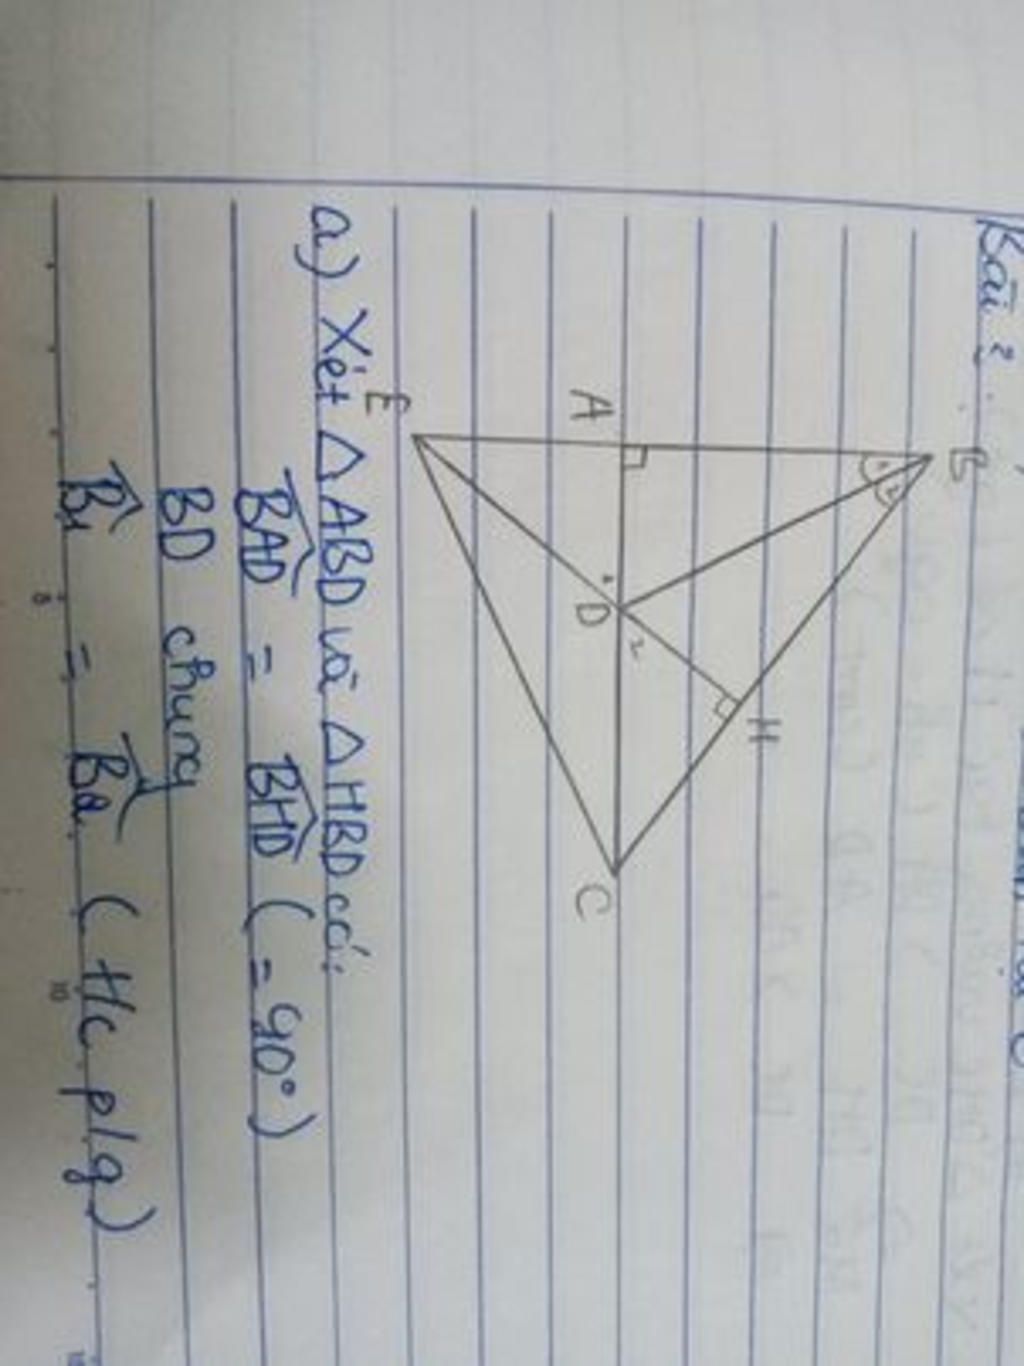 Bài 2
B
1 2
A
D
2
H
E
C
a) Xét △ABD và △HBD có:
BAD̂ = BHD̂ (= 90°)
BD chung
B̂1 = B̂2 (Hc p/g)